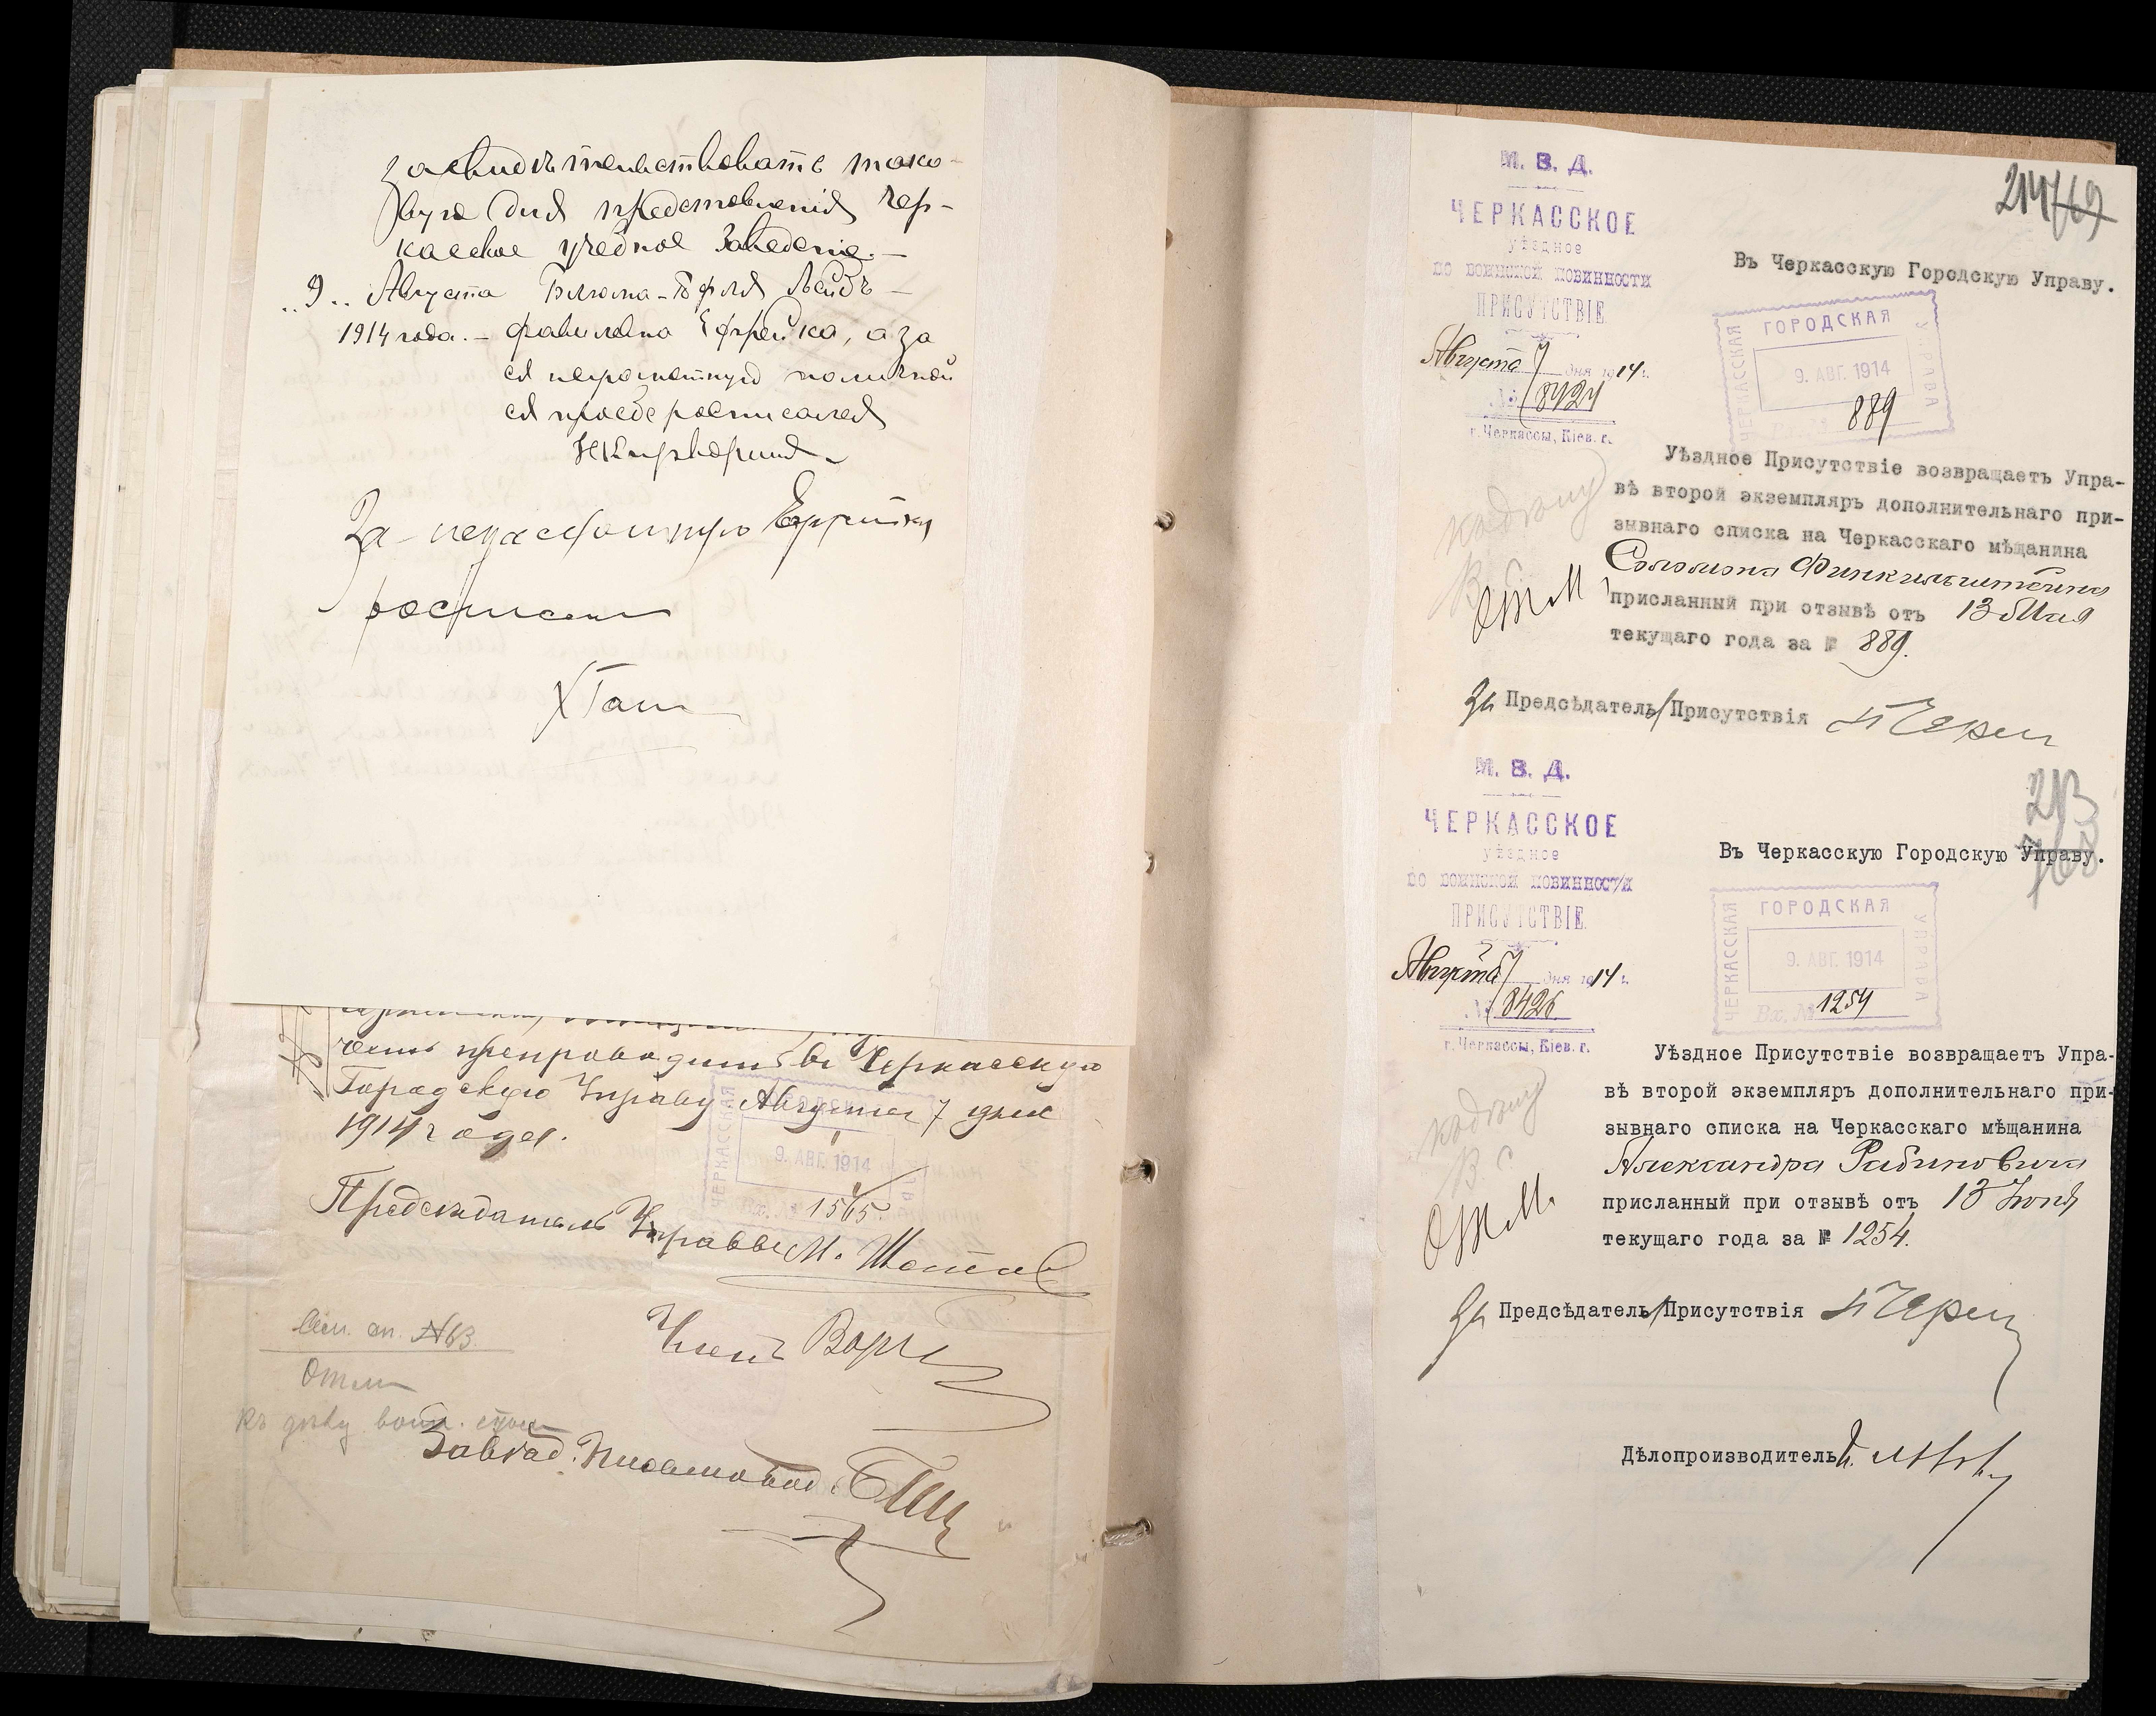 засвидѣтельствовать тако-
вую для представленія Чер-
касское учебное заведеніе.-
„9„ Августа
1914 года. - Ефрейка, а за
ея неграмотную по личной
ея просьбѣ росписался
За неграмотную Ефрейку
росписался
препроводить въ Черкасскую
Городскую Управу Августа 7 дня
1914 года.
9. АВГ. 1914
Вх. № 1565.
Предсѣдатель Управы М.
Членъ
№ 63.
къ дѣлу
М. В. Д.
ЧЕРКАССКОЕ
уѣздное
по воинской повинности
ПРИСУТСТВІЕ
Августа 7 дня 1914 г.
№ 8424
г. Черкассы, Кіев. г.
214
769
Въ Черкасскую Городскую Управу.
ЧЕРКАССКАЯ ГОРОДСКАЯ УПРАВА
9. АВГ. 1914
889
Уѣздное Присутствіе возвращаетъ Упра-
вѣ второй экземпляръ дополнительнаго при-
зывнаго списка на Черкасскаго мѣщанина
Соломона Финкильштейна
присланный при отзывѣ отъ 13 Мая
текущаго года за № 889.
За Предсѣдателя Присутствія
М. В. Д.
ЧЕРКАССКОЕ
уѣздное
по воинской повинности
ПРИСУТСТВІЕ
Августа 7 дня 1914 г.
№ 8426
г. Черкассы, Кіев. г.
213
768
Въ Черкасскую Городскую Управу.
ЧЕРКАССКАЯ ГОРОДСКАЯ УПРАВА
9. АВГ. 1914
Вх. № 1254
Уѣздное Присутствіе возвращаетъ Упра-
вѣ второй экземпляръ дополнительнаго при-
зывнаго списка на Черкасскаго мѣщанина
Александра Рабиновича
присланный при отзывѣ отъ 13 Іюня
текущаго года за № 1254.
За Предсѣдателя Присутствія
Дѣлопроизводитель